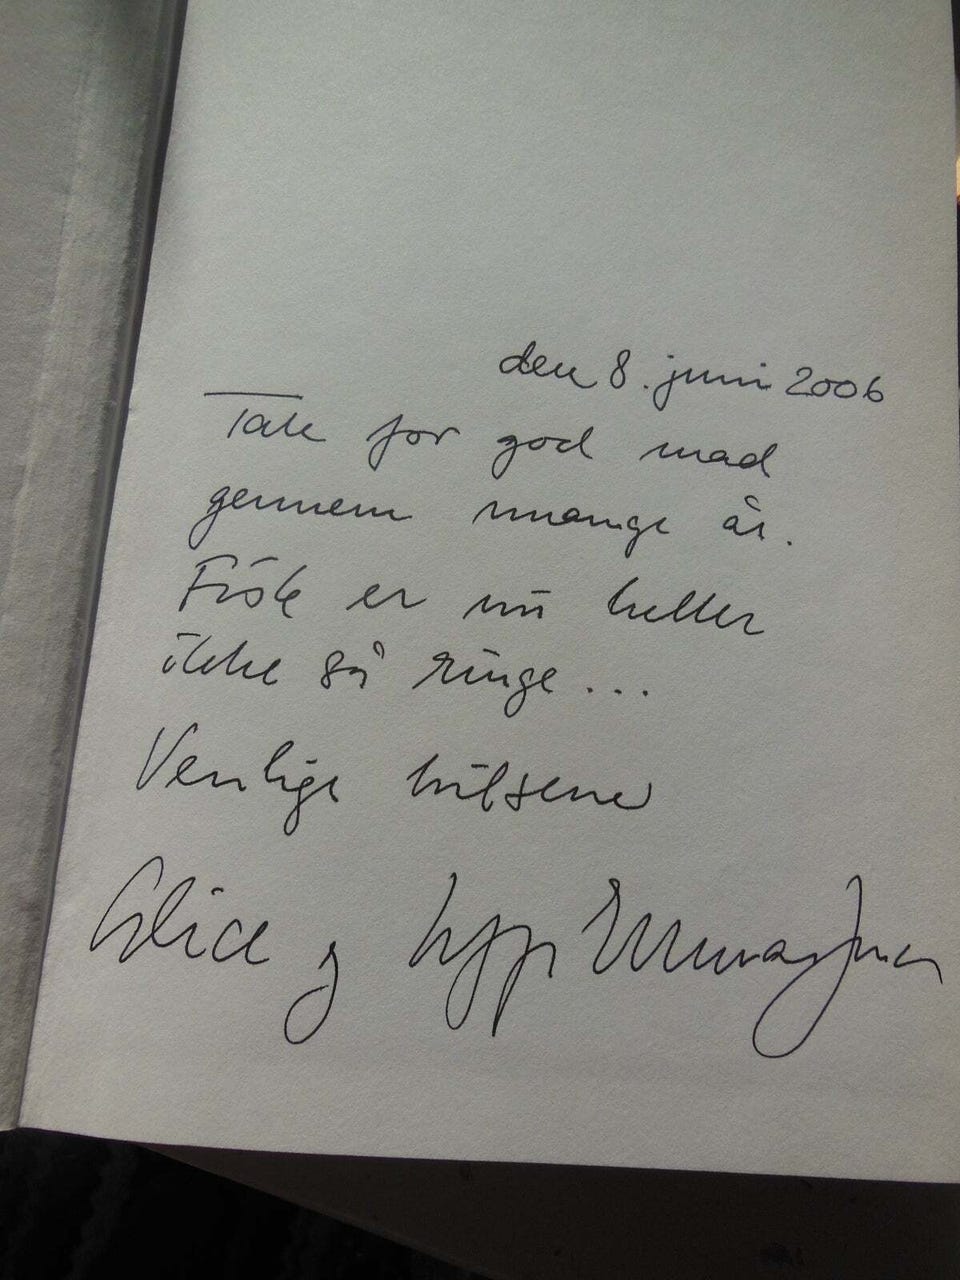 den 8. juni 2006
Tak for god mad
gennem mange år.
Fisk er nu heller
ikke så ringe...
Venlige hilsene
Alice og